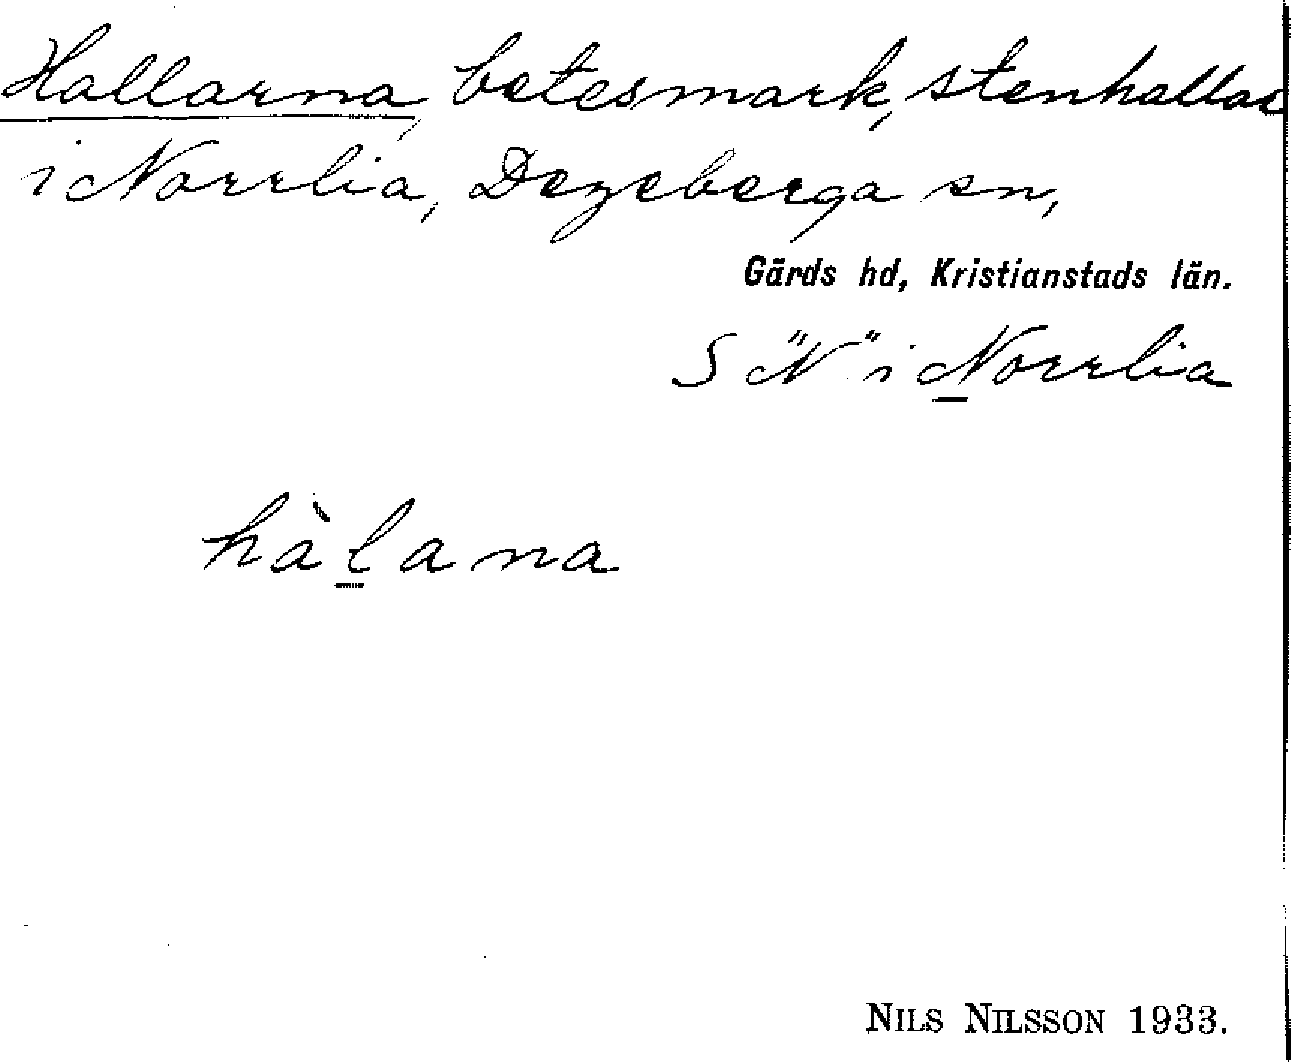 Hallarna, betesmark, stenhallar
i Norrlia, Degeberga sn,
Gärds hd, Kristianstads län.
S "N" i Norrlia
hàlana
NILS NILSSON 1933.